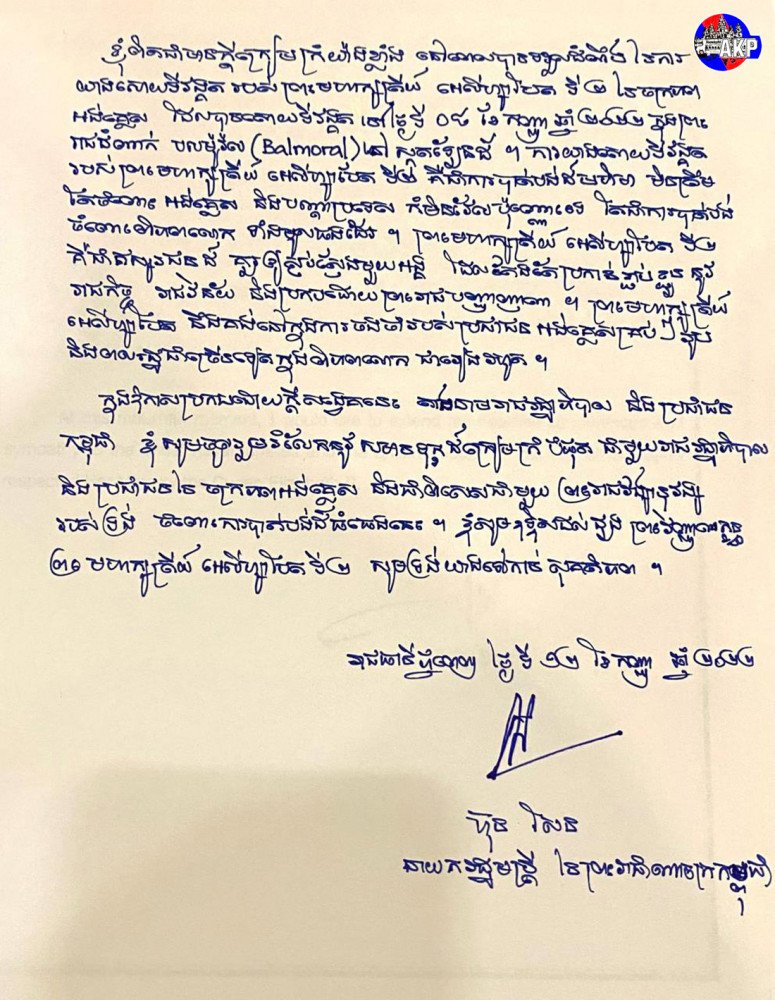 AKP
ខ្ញុំពិតជាមានក្តីក្រៀមក្រំយ៉ាងខ្លាំង ដោយបានទទួលដំណឹង នៃការ
យាងសោយទីវង្គត របស់ព្រះមហាក្សត្រីយ៍ អេលីហ្សាបែត ទី២ នៃចក្រភព
អង់គ្លេស ដែលបានសោយទីវង្គត នៅថ្ងៃទី ០៨ ខែ កញ្ញា ឆ្នាំ ២០២២ ក្នុងព្រះ
រាជដំណាក់ បាលម៉ូរ៉ល (Balmoral) នៅ ស្កុតឡែនដ៍ ។ ការយាងសោយទីវង្គត
របស់ព្រះមហាក្សត្រីយ៍ អេលីហ្សាបែត ទី២ គឺជាការបាត់បង់ដ៏មហិមា មិនត្រឹម
តែចំពោះ អង់គ្លេស និងបណ្តាប្រទេស ប៉ុណ្ណោះទេ តែជាការបាត់បង់
ចំពោះពិភពលោក ទាំងមូលផងដែរ ។ ព្រះមហាក្សត្រីយ៍ អេលីហ្សាបែត ទី២
គឺជា ដ៏ គួរឲ្យ មួយអង្គ ដែលតែងតែប្រកាន់ខ្ជាប់ខ្ជួន នូវ
រាជកិច្ច រាជវិន័យ និងប្រកបដោយព្រះរាជបញ្ញាញាណ ។ ព្រះមហាក្សត្រីយ៍
អេលីហ្សាបែត នឹងគង់នៅក្នុងការចងចាំរបស់ប្រជាជន អង់គ្លេសគ្រប់ៗរូប
និងពលរដ្ឋជាច្រើនទៀតក្នុងពិភពលោក ជារៀងរហូត ។
ក្នុងឱកាសប្រកបដោយក្តីសង្វេគនេះ តាងនាមរាជរដ្ឋាភិបាល និង ប្រជាជន
កម្ពុជា ខ្ញុំ សូមចូលរួមរំលែកនូវ សមានទុក្ខដ៏ក្រៀមក្រំ បំផុត ជាមួយរាជរដ្ឋាភិបាល
និងប្រជាជននៃ ចក្រភពអង់គ្លេស និងជាពិសេសជាមួយ ព្រះរាជវង្សានុវង្ស
របស់ទ្រង់ ចំពោះការបាត់បង់ដ៏ធំធេងនេះ ។ ខ្ញុំសូមឧទ្ទិសដល់ដួង ព្រះវិញ្ញាណក្ខន្ធ
ព្រះមហាក្សត្រីយ៍ អេលីហ្សាបែត ទី២ សូមទ្រង់យាងទៅកាន់ សុគតិភព ។
រាជធានីភ្នំពេញ ថ្ងៃ ទី ១២ ខែ កញ្ញា ឆ្នាំ ២០២២
ហ៊ុន សែន
នាយករដ្ឋមន្ត្រី នៃព្រះរាជាណាចក្រកម្ពុជា